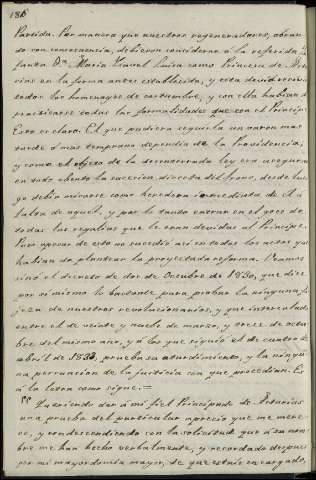 186
Partida. Por manera que nuestros regeneradores, obran-
do con consecuencia, debieron considerar á la referida In-
fanta Dª. Maria Isavel Luisa como Princesa de Astu-
rias en la forma antes establecida, y esta devió recivir
todos los homenages de costumbre, y con ella habian de
practicarse todas las formalidades que con el Principe.
Esto es claro. El que pudiera seguirla un varon mas
tarde ó mas temprano dependia de la Providencia,
y como el objeto de la desenterrada ley era asegurar
en todo evento la succion directa del trono, desde lue-
go debia mirarse como heredera inmediata de él á
falta de aquel, y por lo tanto entrar en el goce de
todas las regalias que le eran devidas al Principe.
Pero apesar de esto no sucedió asi en todos los actos que
habian de plantear la proyectada reforma. Veamos
sinó el decreto de dos de Octubre de 1830, que dice
por si mismo lo bastante para probar la ninguna fi-
jeza de nuestros revolucionarios, y que intercalado
entre el de veinte y nueve de marzo, y trece de octu-
bre del mismo año, y á los que siguió el de cuatro de
abril de 1833, prueba su aturdimiento, y la ningu-
na persuacion de la justicia con que procedian. Es
á la letra como sigue. =
"Queriendo dar á mi fiel Principado de Asturias
una prueba del particular aprecio que me mere-
ce, y condescendiendo con la solicitud que á su nom-
bre me han hecho verbalmente, y recordado despues
por mi mayordomia mayor, de que estais encargado,